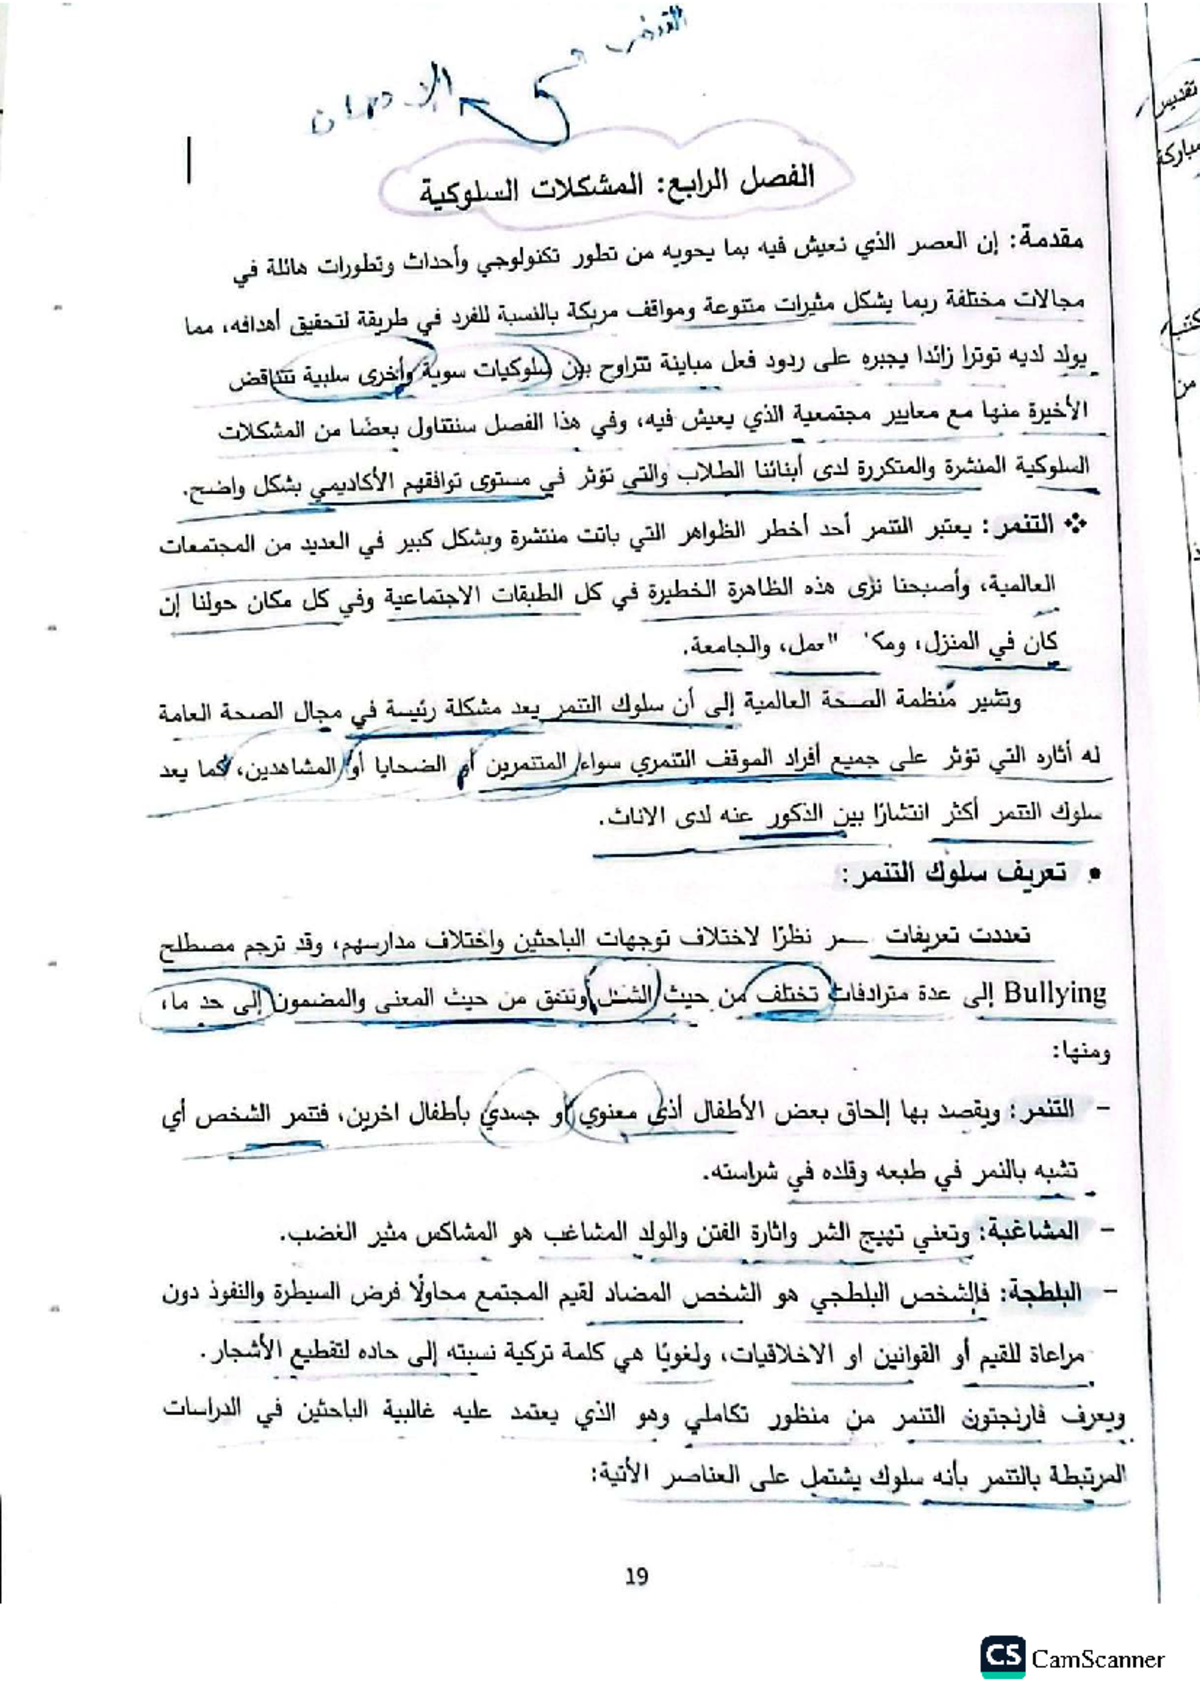 التنمر
الادمان
الفصل الرابع: المشكلات السلوكية
مقدمة: إن العصر الذي نعيش فيه بما يحويه من تطور تكنولوجي وأحداث وتطورات هائلة في
مجالات مختلفة ربما يشكل مثيرات متنوعة ومواقف مربكة بالنسبة للفرد في طريقة لتحقيق أهدافه، مما
يولد لديه توترا زائدا يجبره على ردود فعل مباينة تتراوح بين سلوكيات سوية وأخرى سلبية تتناقض
الأخيرة منها مع معايير مجتمعية الذي يعيش فيه، وفي هذا الفصل سنتناول بعضًا من المشكلات
السلوكية المنشرة والمتكررة لدى أبنائنا الطلاب والتي تؤثر في مستوى توافقهم الأكاديمي بشكل واضح.
❖ التنمر: يعتبر التنمر أحد أخطر الظواهر التي باتت منتشرة وبشكل كبير في العديد من المجتمعات
العالمية، وأصبحنا نرى هذه الظاهرة الخطيرة في كل الطبقات الاجتماعية وفي كل مكان حولنا إن
كان في المنزل، والجامعة.
وتشير منظمة الصحة العالمية إلى أن سلوك التنمر يعد مشكلة رئيسة في مجال الصحة العامة
له أثاره التي تؤثر على جميع أفراد الموقف التنمري سواء المتنمرين أو الضحايا أو المشاهدين، كما يعد
سلوك التنمر أكثر انتشارًا بين الذكور عنه لدى الاناث.
• تعريف سلوك التنمر:
تعددت تعريفات نظرًا لاختلاف توجهات الباحثين واختلاف مدارسهم، وقد ترجم مصطلح
Bullying إلى عدة مترادفات تختلف من حيث الشكل وتتفق من حيث المعنى والمضمون إلى حد ما،
ومنها:
- التنمر: ويقصد بها إلحاق بعض الأطفال أذى معنوي أو جسدي بأطفال اخرين، فتنمر الشخص أي
تشبه بالنمر في طبعه وقلده في شراسته.
- المشاغبة: وتعني تهيج الشر واثارة الفتن والولد المشاغب هو المشاكس مثير الغضب.
- البلطجة: فالشخص البلطجي هو الشخص المضاد لقيم المجتمع محاولًا فرض السيطرة والنفوذ دون
مراعاة للقيم أو القوانين او الاخلاقيات، ولغويًا هي كلمة تركية نسبته إلى حاده لتقطيع الأشجار.
ويعرف فارنجتون التنمر من منظور تكاملي وهو الذي يعتمد عليه غالبية الباحثين في الدراسات
المرتبطة بالتنمر بأنه سلوك يشتمل على العناصر الأتية:
19
CS CamScanner